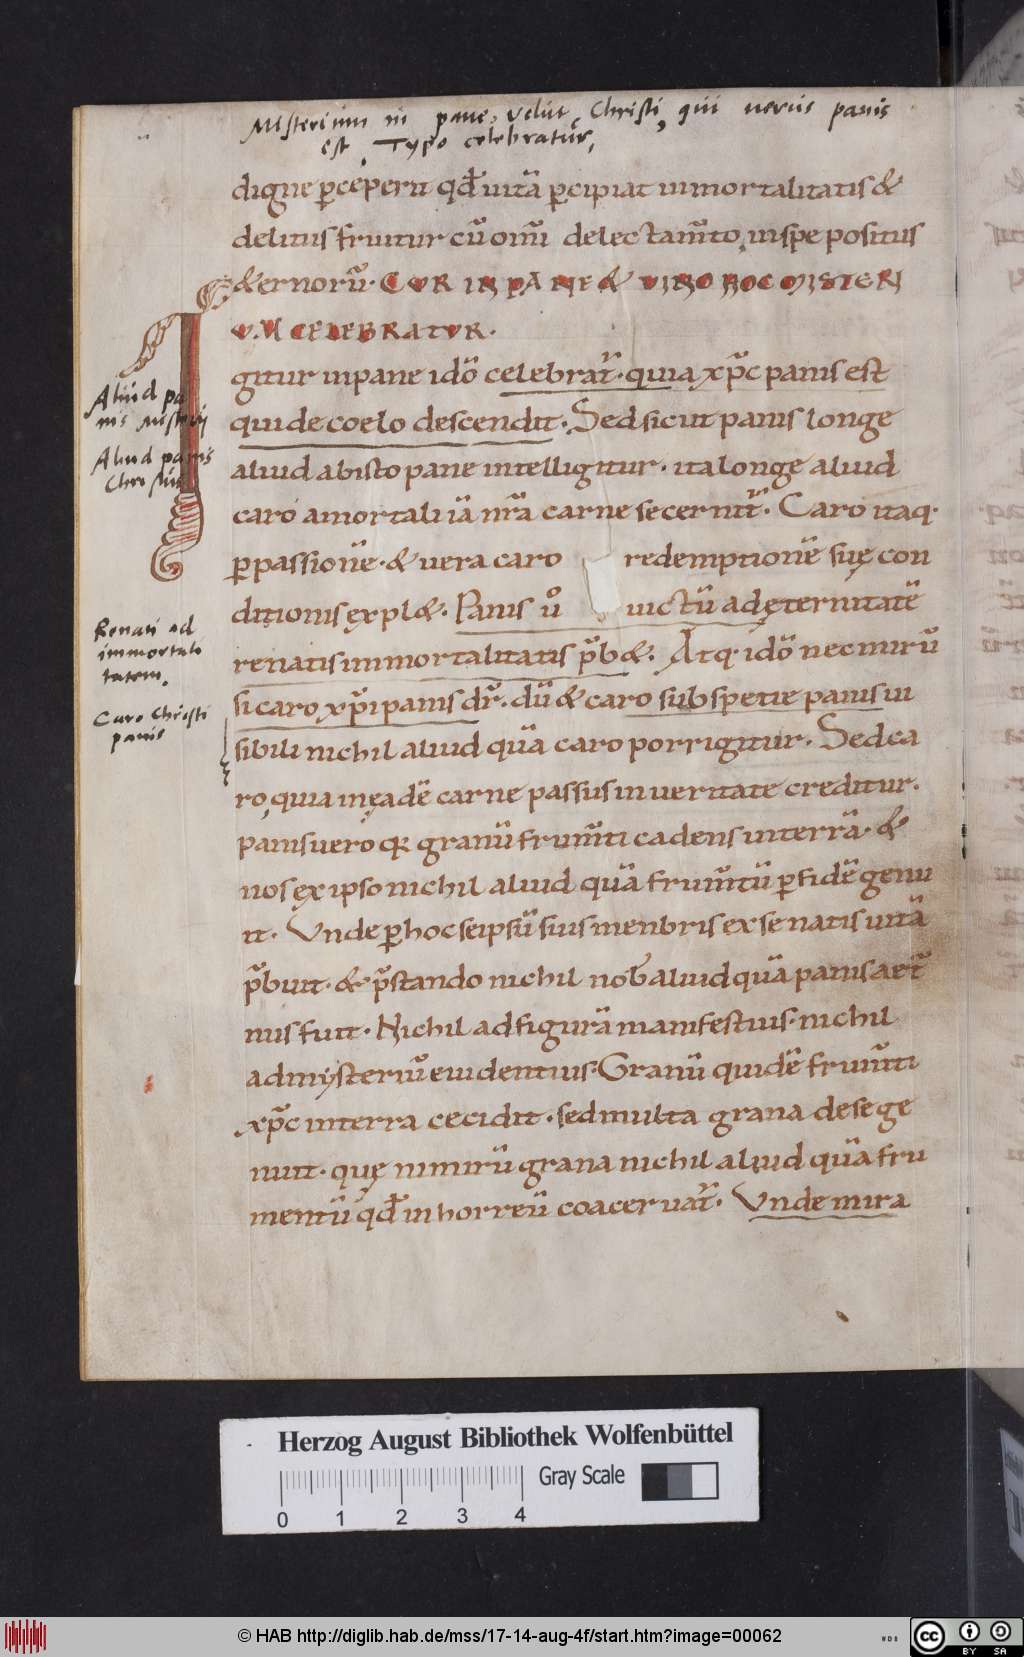 Misterium in pane, velut Christi, qui verus panis
est, Typo celebratur,
digne p̄cęperit qđ uitā p̄cipiat inmortalitatis &
delitus fruitur cū om̄i delectam̄to, inspe positus
&ernorū. CUR IN PANE & VINO HOC MISTERI
U.M CELEBRATUR.
Igitur inpane idō celebrat̄. quia xp̄c panis est
qui de coelo descendit. Sed sicut panis longe
aliud abisto pane intelligitur. ita longe aliud
caro amortali iā nr̄a carne secernit̄. Caro itaq.
p̄passionē. & vera caro redemptionē suę con
ditionis ęxpl&. Panis ů uictū adęternitatē
renatis inmortalitatis p̄b&. Atq. idō nec mirū
si caro xp̄i panis dr̄. dū & caro sub spetie panis ui
sibili nichil aliud quā caro porrigitur. Sed ca
ro, quia inęadē carne passus in ueritate creditur.
panis uero qr granū frum̄ti cadens interrā. &
nos ęx ipso nichil aliud quā frum̄tū p̄ fidē genu
it. Unde p̄ hoc seipsū suis menbris ex se natis uitā
p̄buit. & p̄stando nichil nob̄ aliud quā panis aet̄
nus fuit. Nichil ad figurā manifestius. nichil
ad mysteriū euidentius. Granū quidē frum̄ti
xp̄c interra cecidit. sed multa grana de se ge
nuit. quę nimirū grana nichil aliud quā fru
mentū qđ in horreū coaceruat̄. Unde mira
Aliud pa
nis Misterij
Aliud panis
Christus
Renati ad
immortali
tatem.
Caro Christi
panis
Herzog August Bibliothek Wolfenbüttel
Gray Scale
0 1 2 3 4
© HAB http://diglib.hab.de/mss/17-14-aug-4f/start.htm?image=00062
WDB
cc BY SA